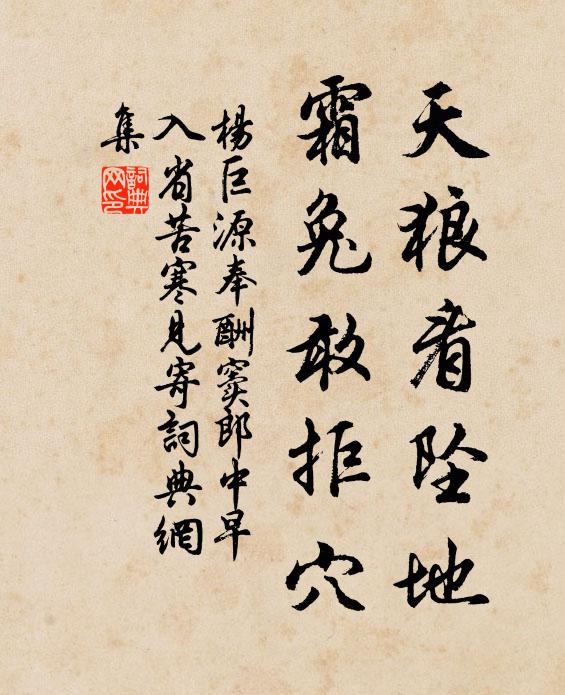 天狼看坠地
霜兔敢拒穴
楊巨源奉酬窦郎中早
入省苦寒見寄詞典網
集
詞典
网印